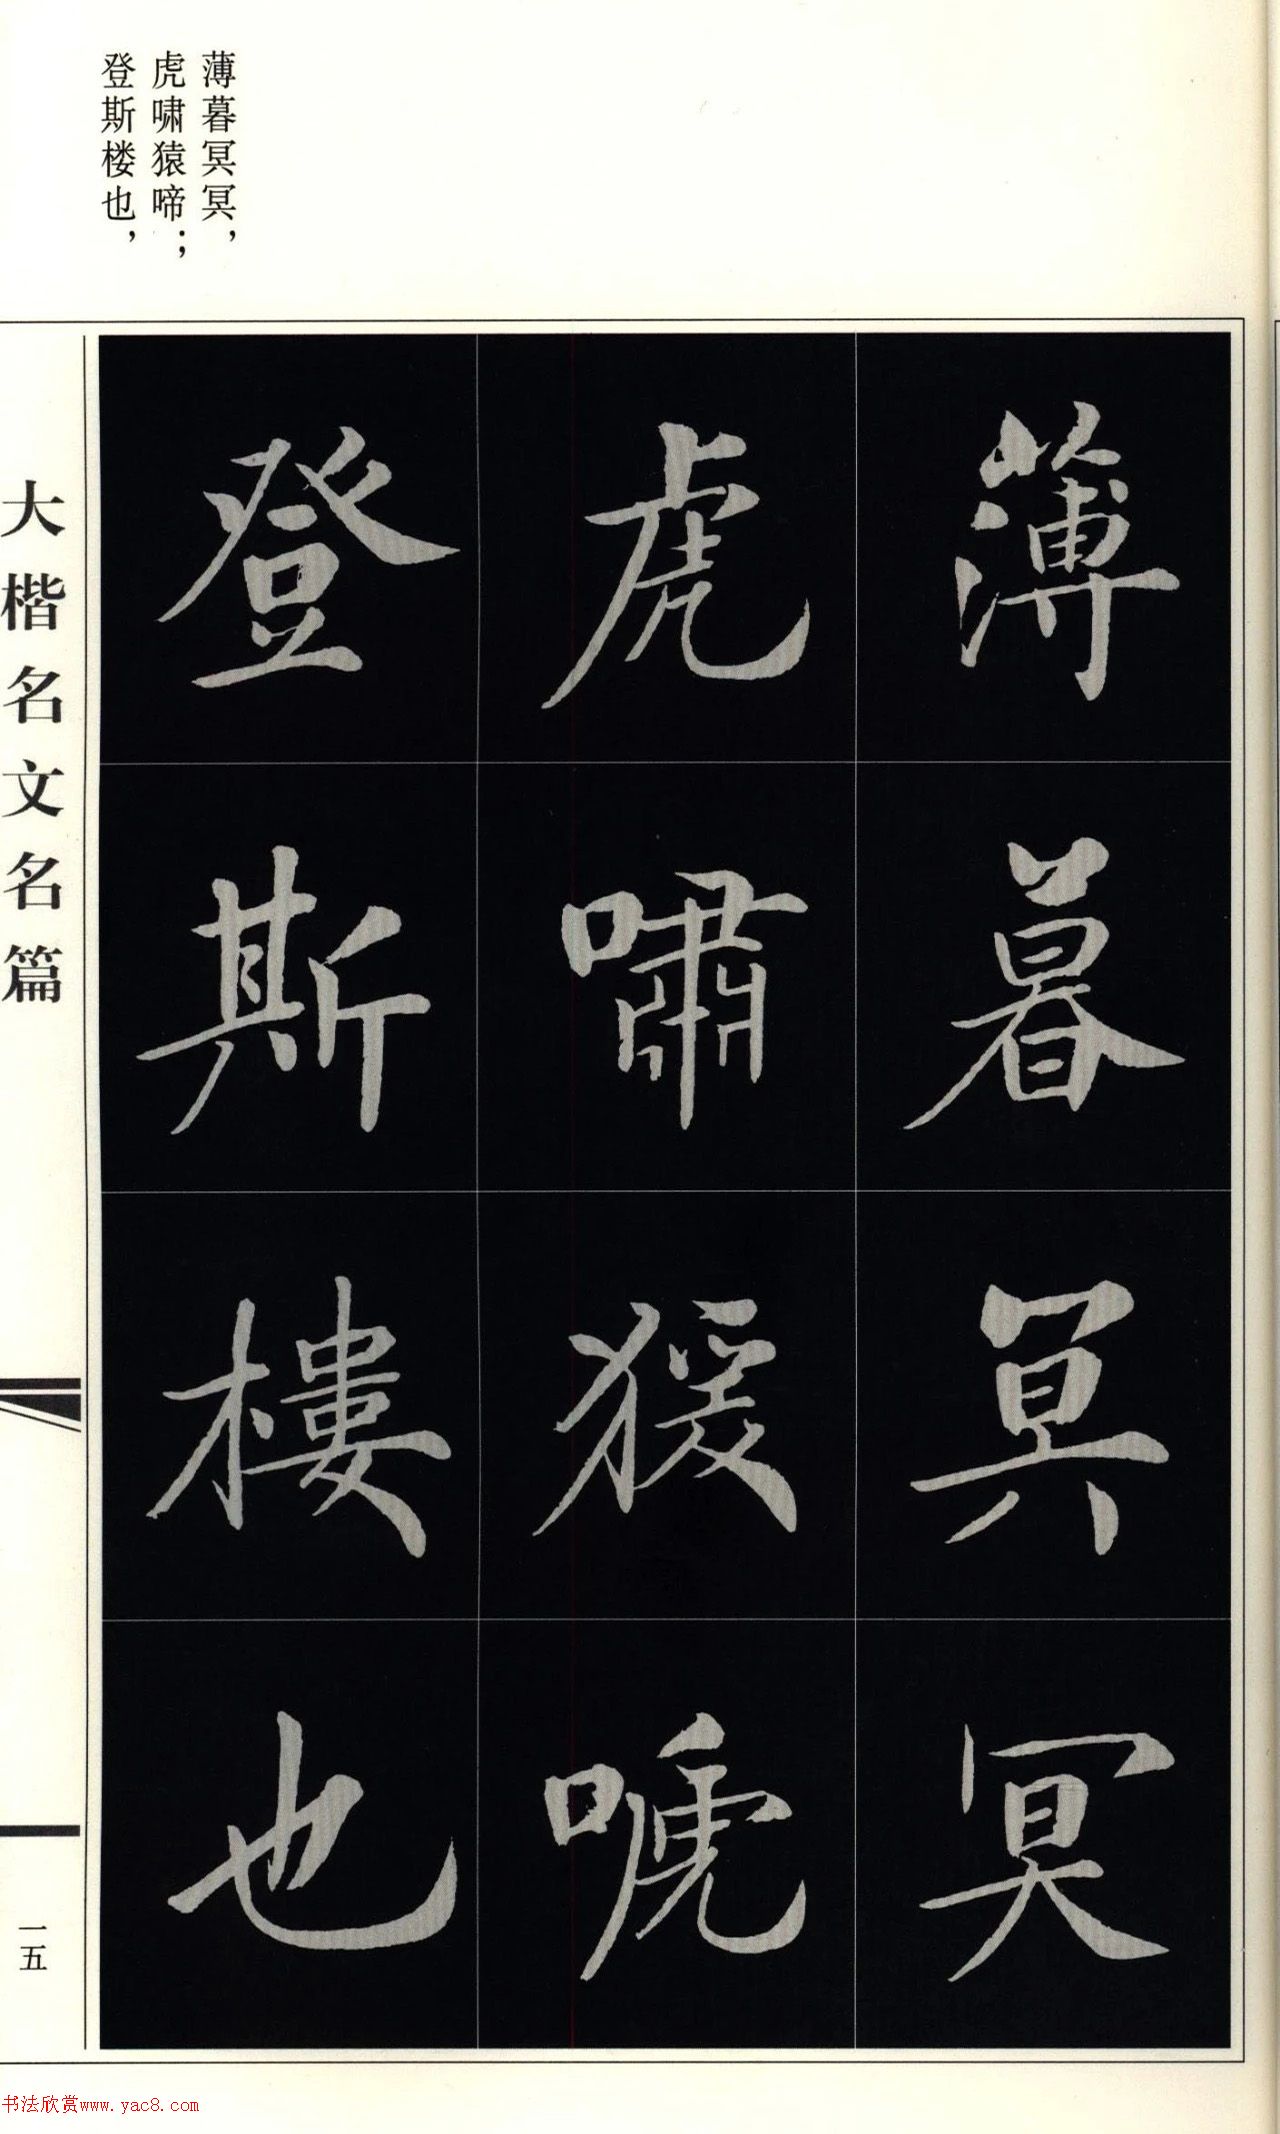 薄暮冥冥，
虎啸猿啼；
登斯楼也，
薄暮冥冥
虎嘯猨嗁
登斯樓也
大楷名文名篇
一五
书法欣赏www.yac8.com